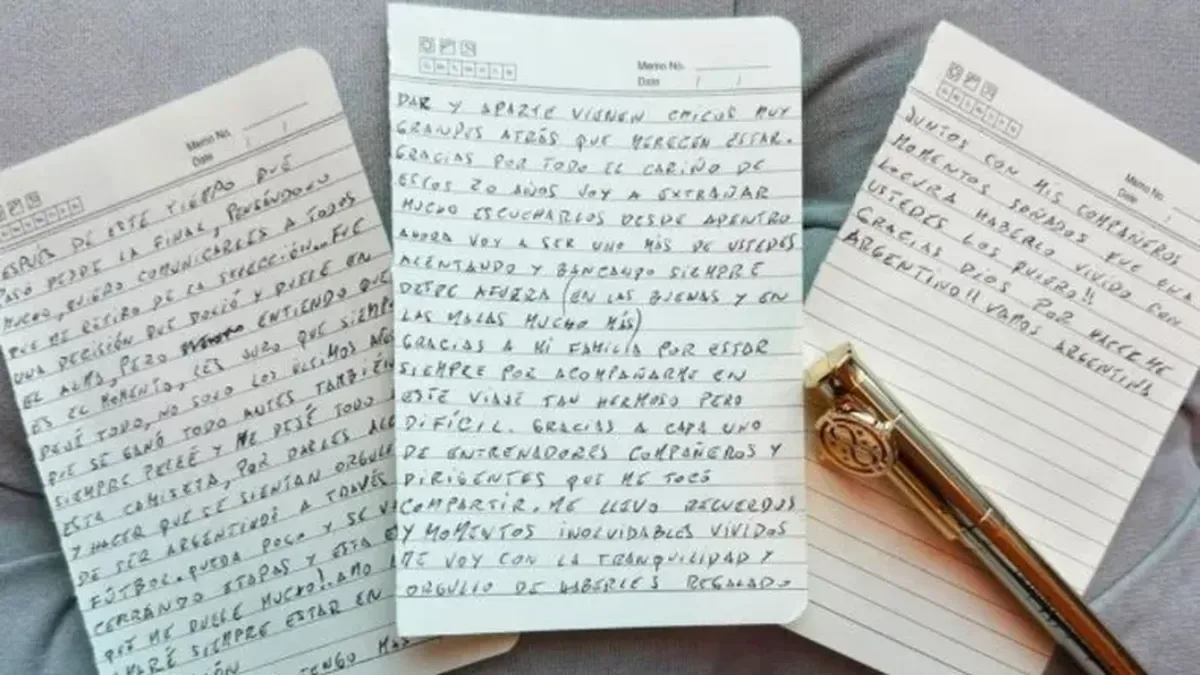 Memo No.
Date / /
ESPUÉS DE ESTE TIEMPO QUE
PASÓ DESDE LA FINAL, PENSÁNDOLO
MUCHO, QUIERO COMUNICARLES A TODOS
QUE ME RETIRO DE LA SELECCIÓN.. FUE
UNA DECISIÓN QUE DOLIÓ Y DUELE EN
EL ALMA, PERO ENTIENDO QUE
ES EL MOMENTO, LES JURO QUE SIEMP
DEJÉ TODO, NO SOLO LOS ÚLTIMOS AÑO
QUE SE GANÓ TODO ANTES TAMBIÉN
SIEMPRE PELEÉ Y ME DEJÉ TODO
ESTA CAMISETA, POR DARLES ALE
Y HACER QUE SE SIENTAN ORGULL
DE SER ARGENTINO A TRAVÉS
FÚTBOL. QUEDA POCO Y SE VA
CERRANDO ETAPAS Y ESTA ES
QUE ME DUELE MUCHO!. AMO
AMARÉ SIEMPRE ESTAR EN
CIÓN TENGO MÁS
Memo No.
Date / /
DAR Y APARTE VIENEN CHICOS MUY
GRANDES ATRÁS QUE MERECEN ESTAR.
GRACIAS POR TODO EL CARIÑO DE
ESTOS 20 AÑOS VOY A EXTRAÑAR
MUCHO ESCUCHARLOS DESDE ADENTRO
AHORA VOY A SER UNO MÁS DE USTEDES
ALENTANDO Y BANCANDO SIEMPRE
DESDE AFUERA (EN LAS BUENAS Y EN
LAS MALAS MUCHO MÁS)
GRACIAS A MI FAMILIA POR ESTAR
SIEMPRE POR ACOMPAÑARME EN
ESTE VIAJE TAN HERMOSO PERO
DIFÍCIL. GRACIAS A CADA UNO
DE ENTRENADORES COMPAÑEROS Y
DIRIGENTES QUE ME TOCÓ
COMPARTIR. ME LLEVO RECUERDOS
Y MOMENTOS INOLVIDABLES VIVIDOS
ME VOY CON LA TRANQUILIDAD Y
ORGULLO DE HABERLES REGALADO
Memo No.
Date /
JUNTOS CON MIS COMPAÑEROS
MOMENTOS SOÑADOS FUE UNA
LOCURA HABERLO VIVIDO CON
USTEDES LOS QUIERO!!
GRACIAS DIOS POR HACERME
ARGENTINO!! VAMOS ARGENTINA